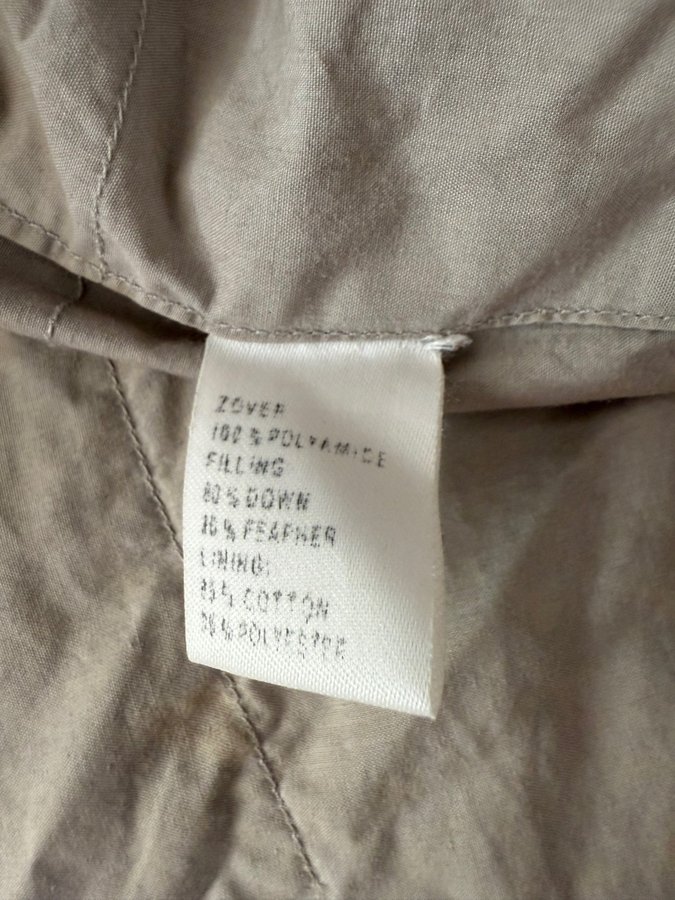 ZOVER
100% POLYAMIDE
FILLING
80% DOWN
FEAFHER
LINING:
COTTON
POLYESTER